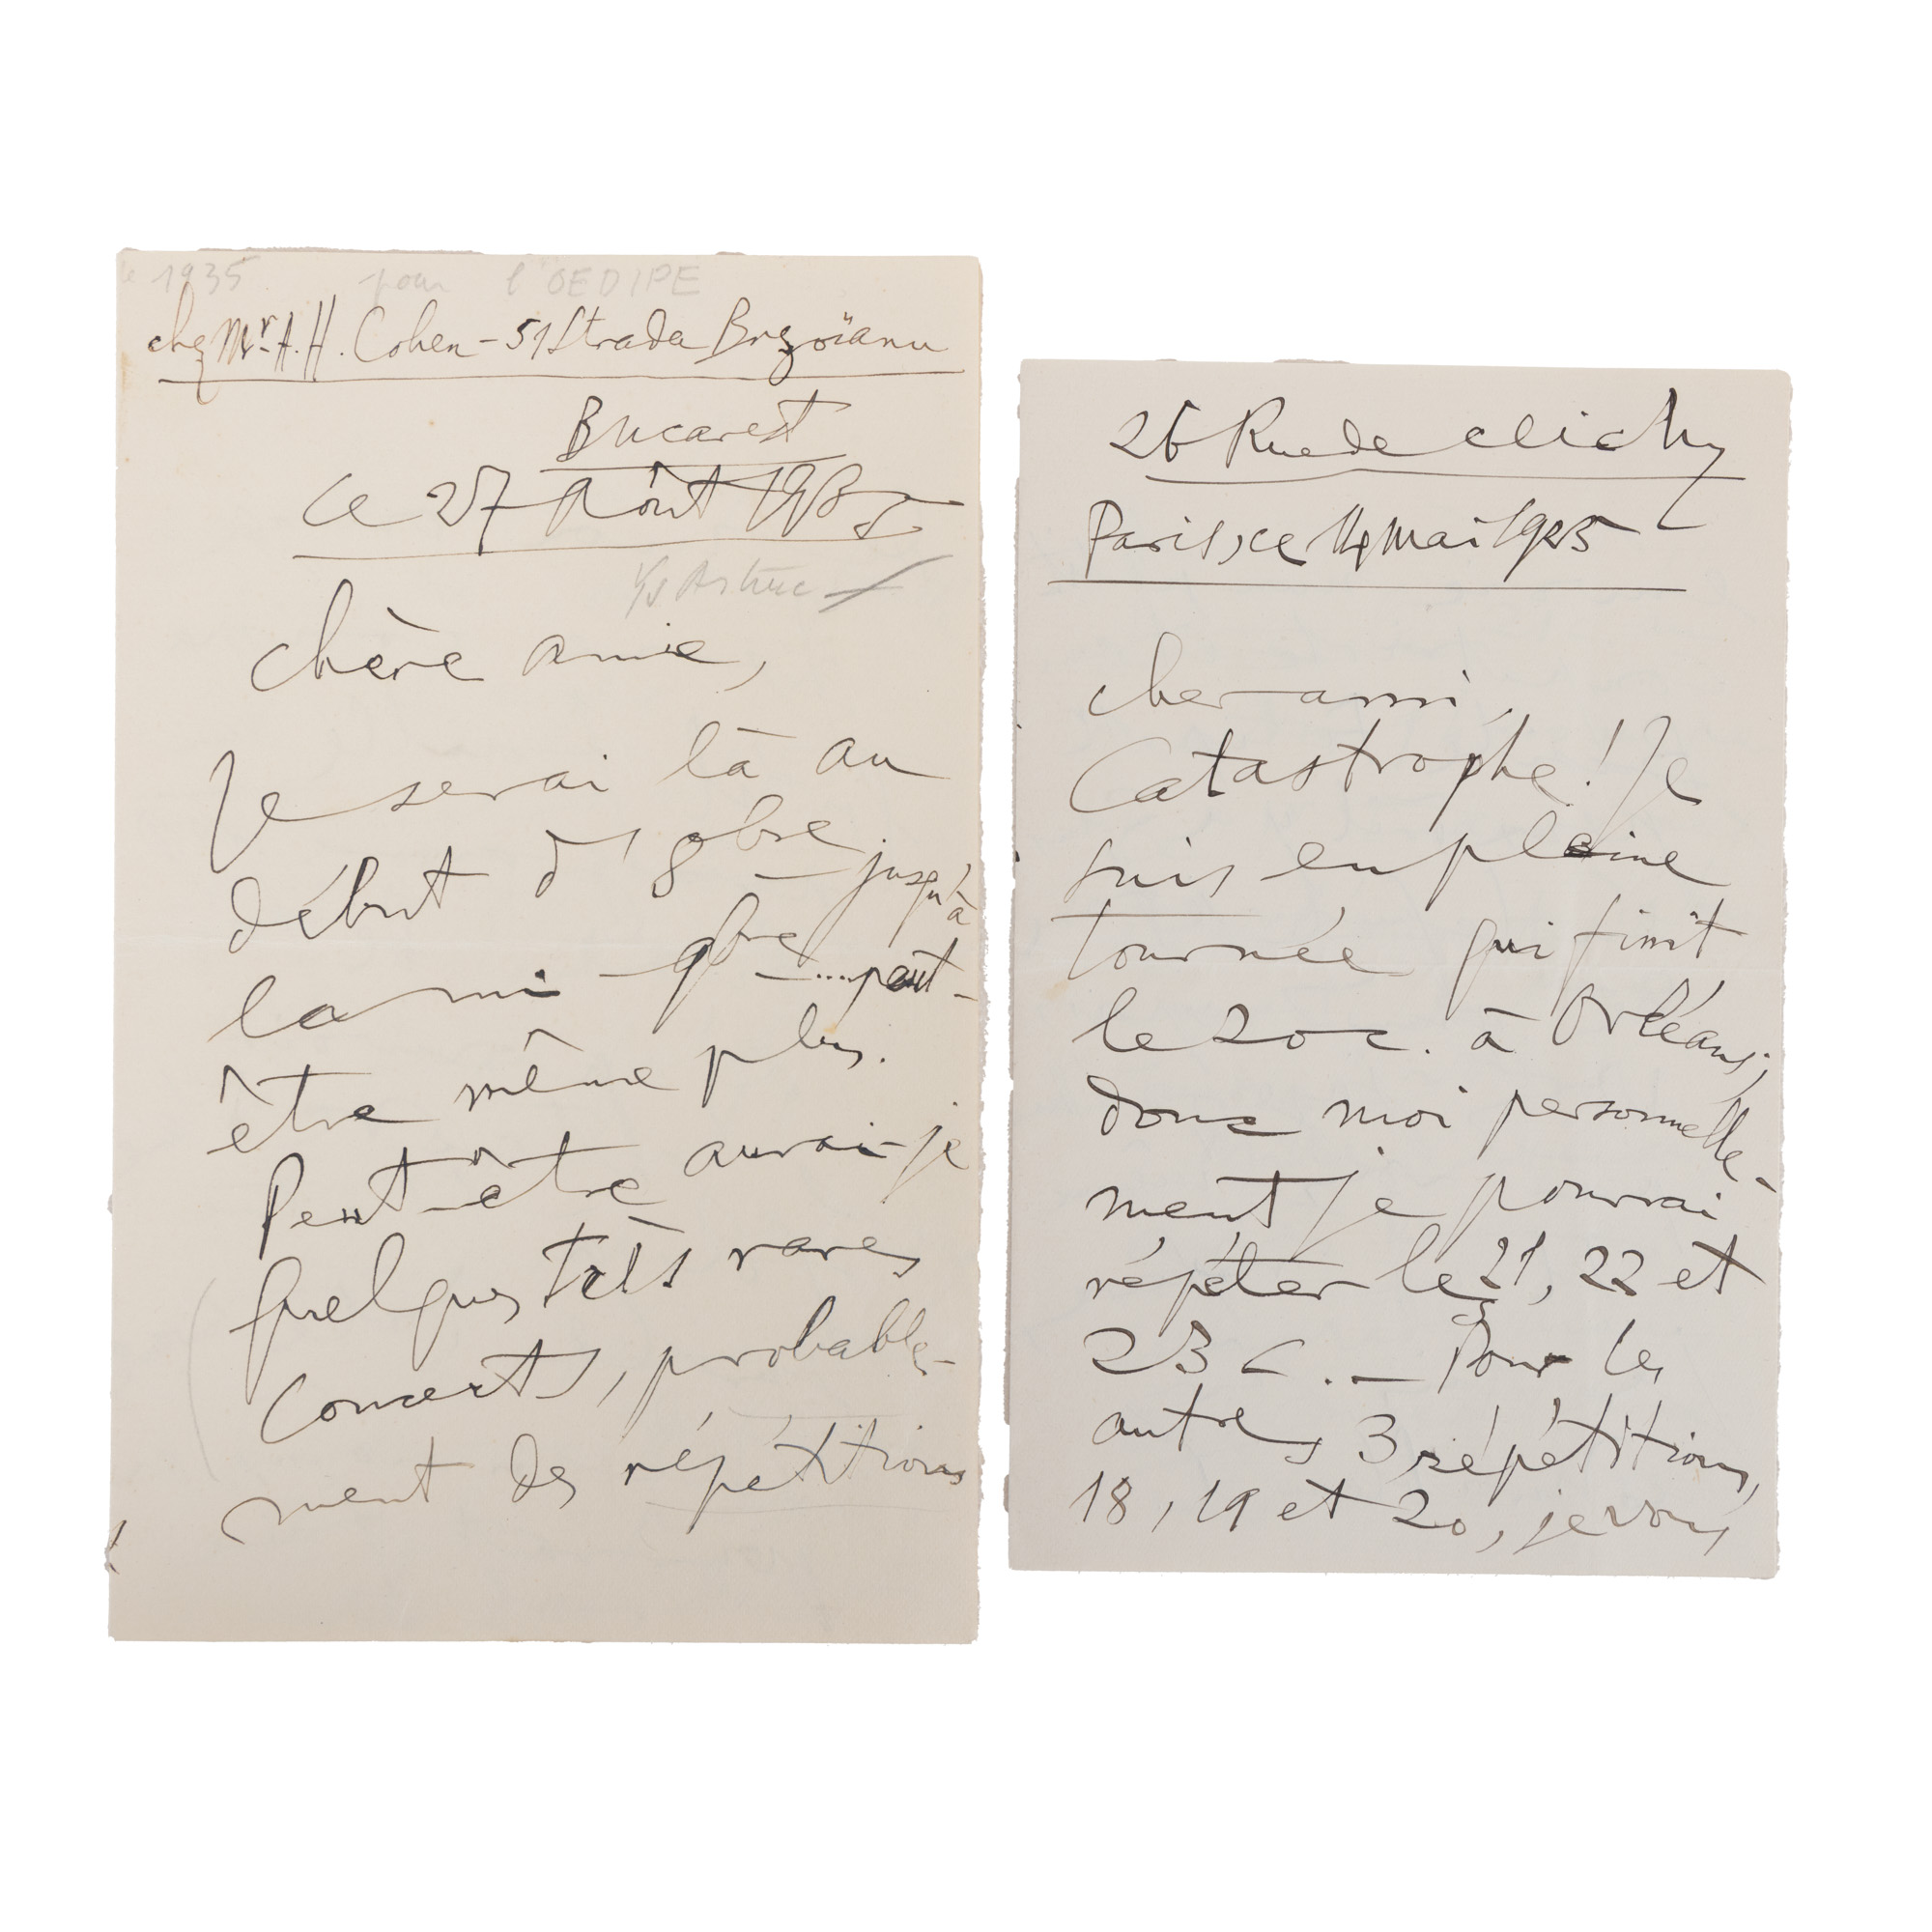 1935 pour l'OEDIPE
chez Mr. A. H. Cohen - 51 Strada Brezoïanu
Bucarest
ce 27 Août 1935
Astruc
Chère amie,
Je serai là au
début d' 8bre jusqu'à
la mi - 9bre .... peut-
être même plus.
Peut-être aurai-je
quelques très rares
concerts, probable-
ment des répétitions
26 Rue de Clichy
Paris, ce 14 Mai 1925
Cher ami,
Catastrophe! Je
suis en pleine
tournée qui finit
le 20 c. à Orléans;
donc moi personnelle-
ment je pourrai
répéter les 21, 22 et
23 c. - Pour les
autres 3 répétitions,
18, 19 et 20, je vous